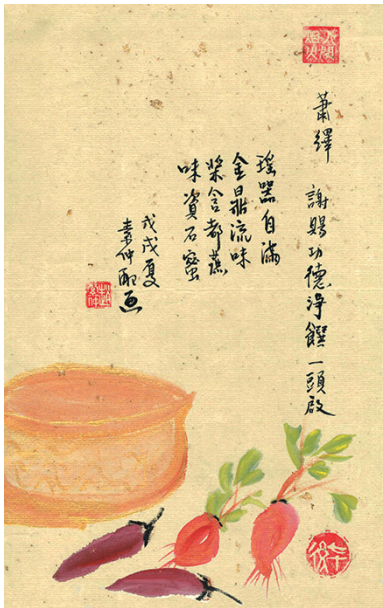 蕭繹 謝賜功德淨饌一頭啟
瑶器自滿
金鼎流味
漿含都蔗
味資石蜜
戊戌夏
素仲配画